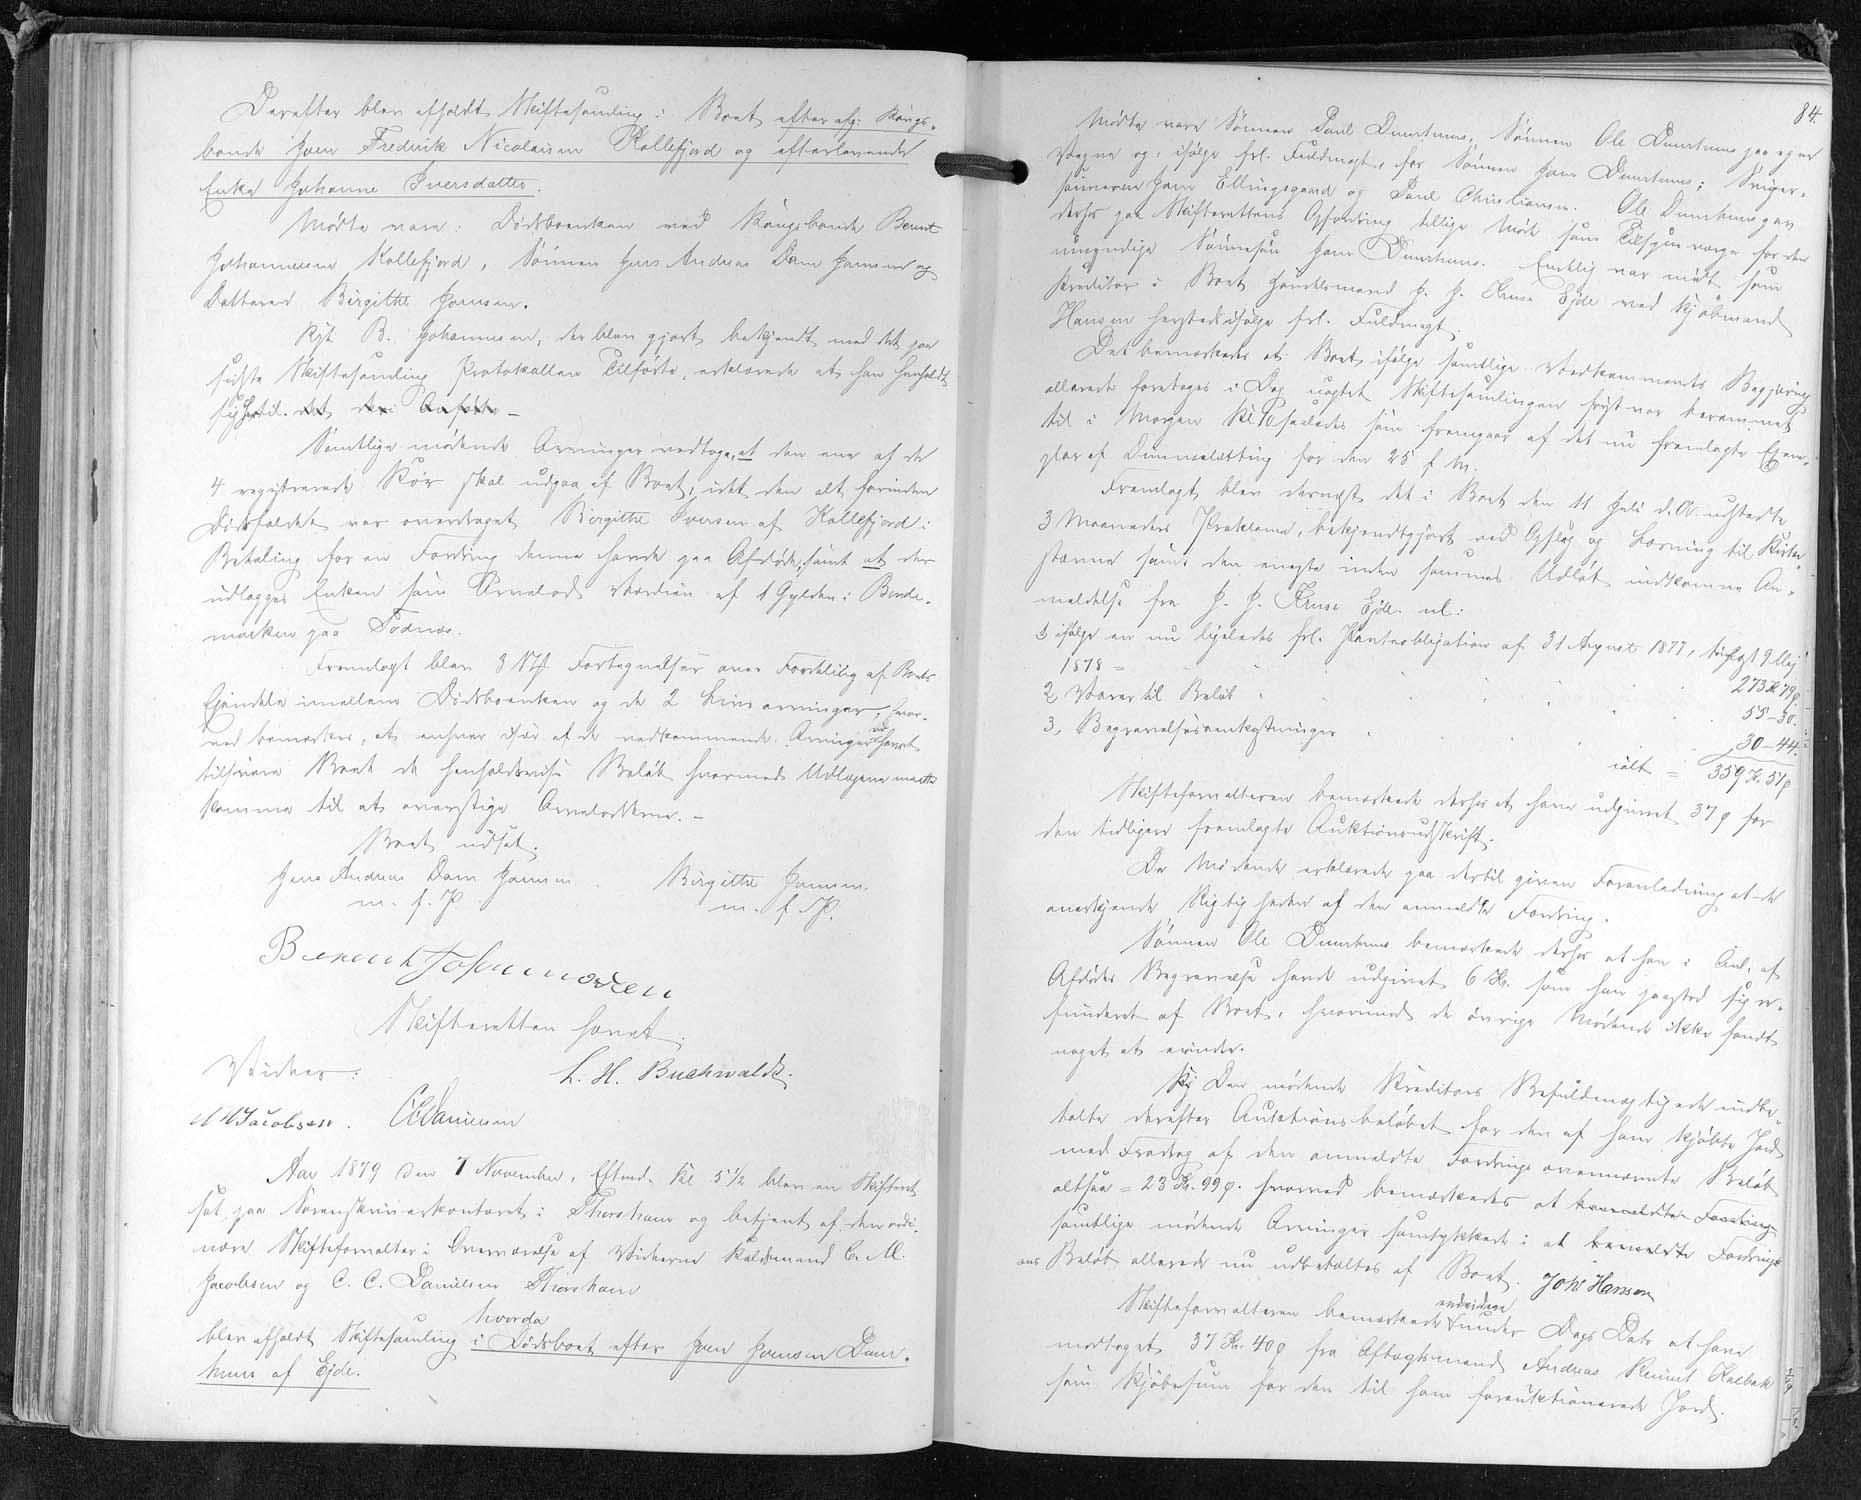 Derefter blev afholdt Skiftesamling i Boet efter afg. Kongs-
bonde Joen Frederik Nicolaisen Kollefjord og efterlevende
Enke Johanne Iversdatter.
Mødte vare: Dødsboenken med Kongsbonde Berent
Johannesen Kollefjord, Sønnen Jens Andreas Dam Joensen og
Datteren Birgithe Joensen.
Kgb. B. Johannesen, der blev gjort bekjendt med det paa
sidste Skiftesamling Protokollen Tilførte, erklærede at han henholdt
sig hertil. det der Anførte –
Samtlige mødende Arvinger vedtoge, at den ene af de
4 registrerede Køer skal udgaa af Boet, idet den alt forinden
Dødsfaldet var overdraget Birgithe Iversen af Kollefjord i
Betaling for en Fordring denne havde paa Afdøde, samt at der
udlægges Enken som Arvelod Værdien af 1 Gylden i Bonde-
marken paa Fødnæs.
Fremlagt blev 3 Stk. Fortegnelser over Fordeling af Boets
Ejendele imellem Dødsboenken og de 2 Livsarvinger, hvor-
ved bemærkes, at enhver især af de vedkommende Arvinger havde
tilsvare Boet de henholdsvise Beløb hvormed Udlægene maatte
komme til at overstige Arvelodderne. –
Boet udsat.
Jens Andreas Dam Joensen Birgithe Joensen.
m. f. P. m. f. P.
Berent Johannesen
Skifteretten hævet.
Vidner: L. H. Buchwaldt.
C M Jacobsen. CCDanielsen
Aar 1879 den 7 November, Eftmd. Kl. 5½ blev en Skifteret
sat paa Sorenskriverkontoret i Thorshavn og betjent af den ordi-
nære Skifteforvalter i Overværelse af Vidnerne Kaldsmand C. M.
Jacobsen og C. C. Danielsen Thorshavn
hvorda
blev afholdt Skiftesamling i Dødsboet efter Joen Joensen Duur-
huus af Ejde.
84.
Mødte vare Sønnen Poul Duurhuus, Sønnen Ole Duurhuus paa egne
Vegne og, ifølge frl. Fuldmagt, for Sønnen Joen Duurhuus; Sviger-
sønnerne Joen Ellingsgaard og Poul Christiansen. Ole Duurhuus gav
derhos paa Skifterettens Opfordring tillige Møde som Tilsynsværge for den
umyndige Sønnesøn Joen Duurhuus. Endelig var mødt som
Kreditor i Boet Handelsmand J. J. Kruse Ejde ved Kjøbmand
Hansen hersteds ifølge frl. Fuldmagt.
Det bemærkedes at Boet ifølge samtlige Vedkommendes Begjæring
allerede foretages i Dag uagtet Skiftesamlingen først var berammet
til i Morgen Kl 10 saaledes som fremgaar af det nu fremlagte Exem-
plar af Dimmalætting for den 25 f. M.
Fremlagt blev dernæst det i Boet den 11 Juli d. A. udstedte
3 Maaneders Proklama, bekjendtgjort ved Opslag og Læsning til Kirke-
stævne samt den eneste inden sammes Udløb indkomne An-
meldelse fra J. J. Kruse Ejde. nl:
1, ifølge en nu ligeledes frl. Panteobligation af 31 August 1877, tinglæst 9 Maj
1878 = 273 Kr. 79 ø
2, Varer til Beløb 55 – 30.
3, Begravelsesomkostninger 30 – 44.
ialt = 359 Kr. 51 ø
Skifteforvalteren bemærkede derhos at have udgivet 37 ø for
den tidligere fremlagte Auktionsudskrift.
De Mødende erklærede paa dertil given Foranledning at de
anerkjende Rigtigheden af den anmeldte Fordring.
Sønnen Ole Duurhuus bemærkede derhos at han i Anl. af
Afdødes Begravelse havde udgivet 6 Kr. som han paastod sig re-
funderet af Boet, hvorimod de øvrige Mødende ikke fandt
noget at erindre.
Kj Den mødende Kreditors Befuldmægtigede indbe-
talte derefter Auktionsbeløbet for den af ham kjøbte Jord
med Fradrag af den anmeldte Fordrings ovennævnte Beløb
altsaa = 23 Kr. 99 ø. hvorved bemærkedes at bemeldte Fordring
samtlige mødende Arvinger samtykkede i at bemeldte Fordrings
Beløb allerede nu udbetaltes af Boet. Joh: Hansen
Skifteforvalteren bemærkede endvidere under Dags Dato at have
modtaget 37 Kr. 40 ø fra Aftægtsmand Andreas Kalbak
som Kjøbesum for den til ham forauktionerede Jord.